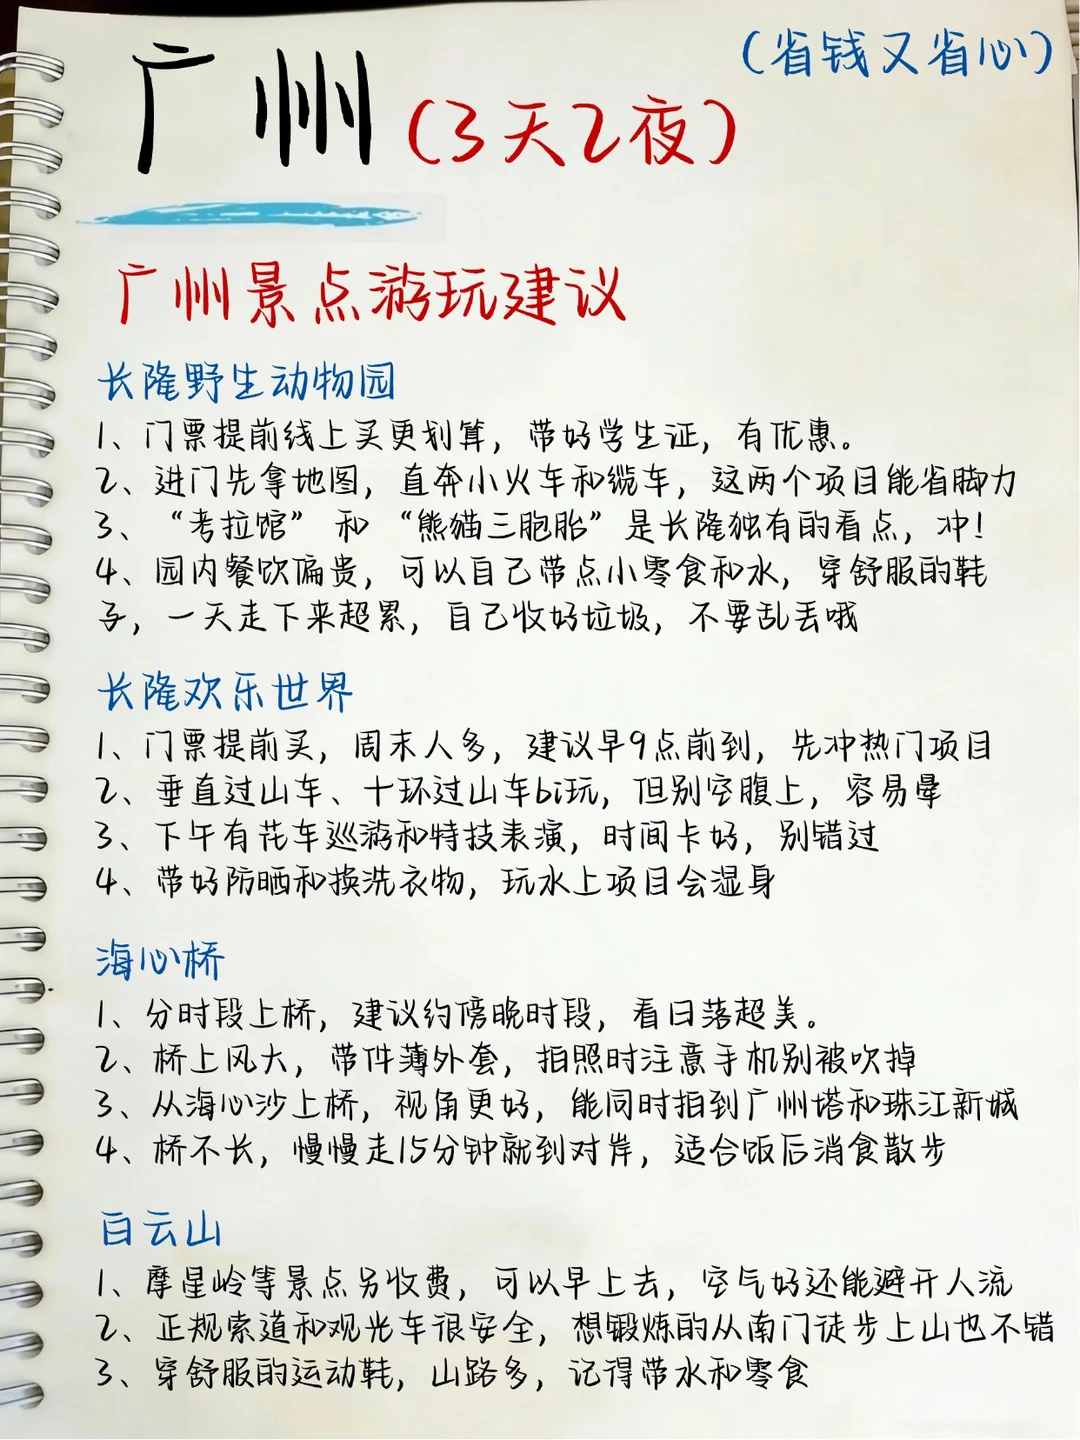 广州(3天2夜)
(省钱又省心)
广州景点游玩建议
长隆野生动物园
1、门票提前线上买更划算，带好学生证，有优惠。
2、进门先拿地图，直奔小火车和缆车，这两个项目能省脚力
3、“考拉馆”和“熊猫三胞胎”是长隆独有的看点，冲!
4、园内餐饮偏贵，可以自己带点小零食和水，穿舒服的鞋
子，一天走下来超累，自己收好垃圾，不要乱丢哦
长隆欢乐世界
1、门票提前买，周末人多，建议早9点前到，先冲热门项目
2、垂直过山车、十环过山车bi玩，但别空腹上，容易晕
3、下午有花车巡游和特技表演，时间卡好，别错过
4、带好防晒和换洗衣物，玩水上项目会湿身
海心桥
1、分时段上桥，建议约傍晚时段，看日落超美。
2、桥上风大，带件薄外套，拍照时注意手机别被吹掉
3、从海心沙上桥，视角更好，能同时拍到广州塔和珠江新城
4、桥不长，慢慢走15分钟就到对岸，适合饭后消食散步
白云山
1、摩星岭等景点另收费，可以早上去，空气好还能避开人流
2、正规索道和观光车很安全，想锻炼的从南门徒步上山也不错
3、穿舒服的运动鞋，山路多，记得带水和零食